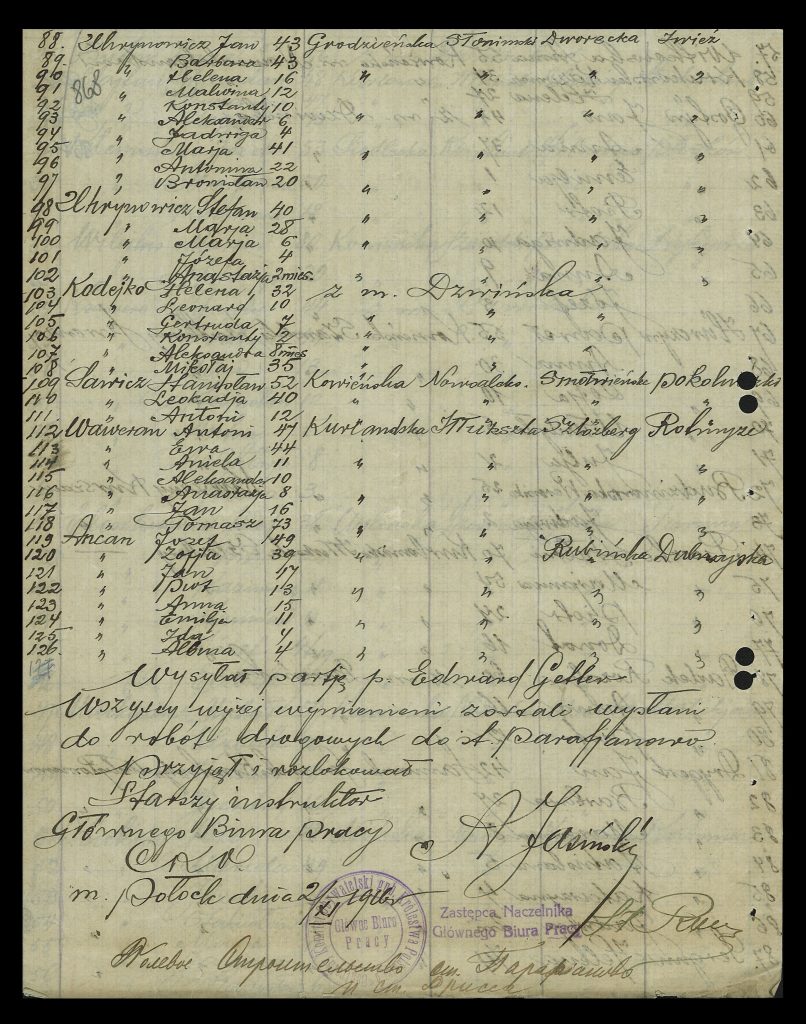 88. Uhrynowicz Jan 43 Grodzieńska Słonimski Dworecka Iwież
89. " Barbara 43
90 " Helena 16 " " " "
91 " Malwina 12
868
92 " Konstanty 10 " " " "
93 " Aleksander 6
94 " Jadwiga 4 " " " "
95 " Marja 41
96 " Antonina 22 " " " "
97 " Bronisław 20 " " " "
98 Uhrynowicz Stefan 40
99 " Marja 28 " " " "
100 " Marja 6 " " " "
101 " Józefa 4
102 " Anastazja 2 mies. " " "
103 Kodejko Helena 32 z m. Dźwińska
104 " Leonard 10
105 " Gertruda 7 " "
106 " Konstanty 2 " "
107 " Aleksandra 8 mies " "
108 " Mikołaj 35 "
109 Sawicz Stanisław 52 Kowieńska
110 " Leokadja 40 " " " "
111. " Antoni 12
112 Waweran Antoni 47 Kurlandska Sztözberg
113 " Ewa 44
114 " Aniela 11 " " " "
115 " Aleksander 10
116 " Anastazja 8 " " " "
117 " Jan 16
118 " Tomasz 73 " " " "
119 Ancan Józef 49
120 " Zofja 39 " " Rubińska
121 " Jan 17
122 " Piotr 13 " " " "
123 " Anna 15
124 " Emilja 11 " " " "
125 " Ida 4
126. " Albina 4 " " " "
127
Wysyłał partję p. Edward Geller
Wszyscy wyżej wymienieni zostali wysłani
do robót drogowych do st. Parafjanowo
Przyjął i rozlokował
Starszy instruktor
Głównego Biura Pracy A Jasiński
C.K.O.
m. Połock dnia 2/XI 1916
Główne Biuro
Pracy
Zastępca Naczelnika
Głównego Biura Pracy
Полевое Строительство ст. Парафianово
и ст. Дрисса